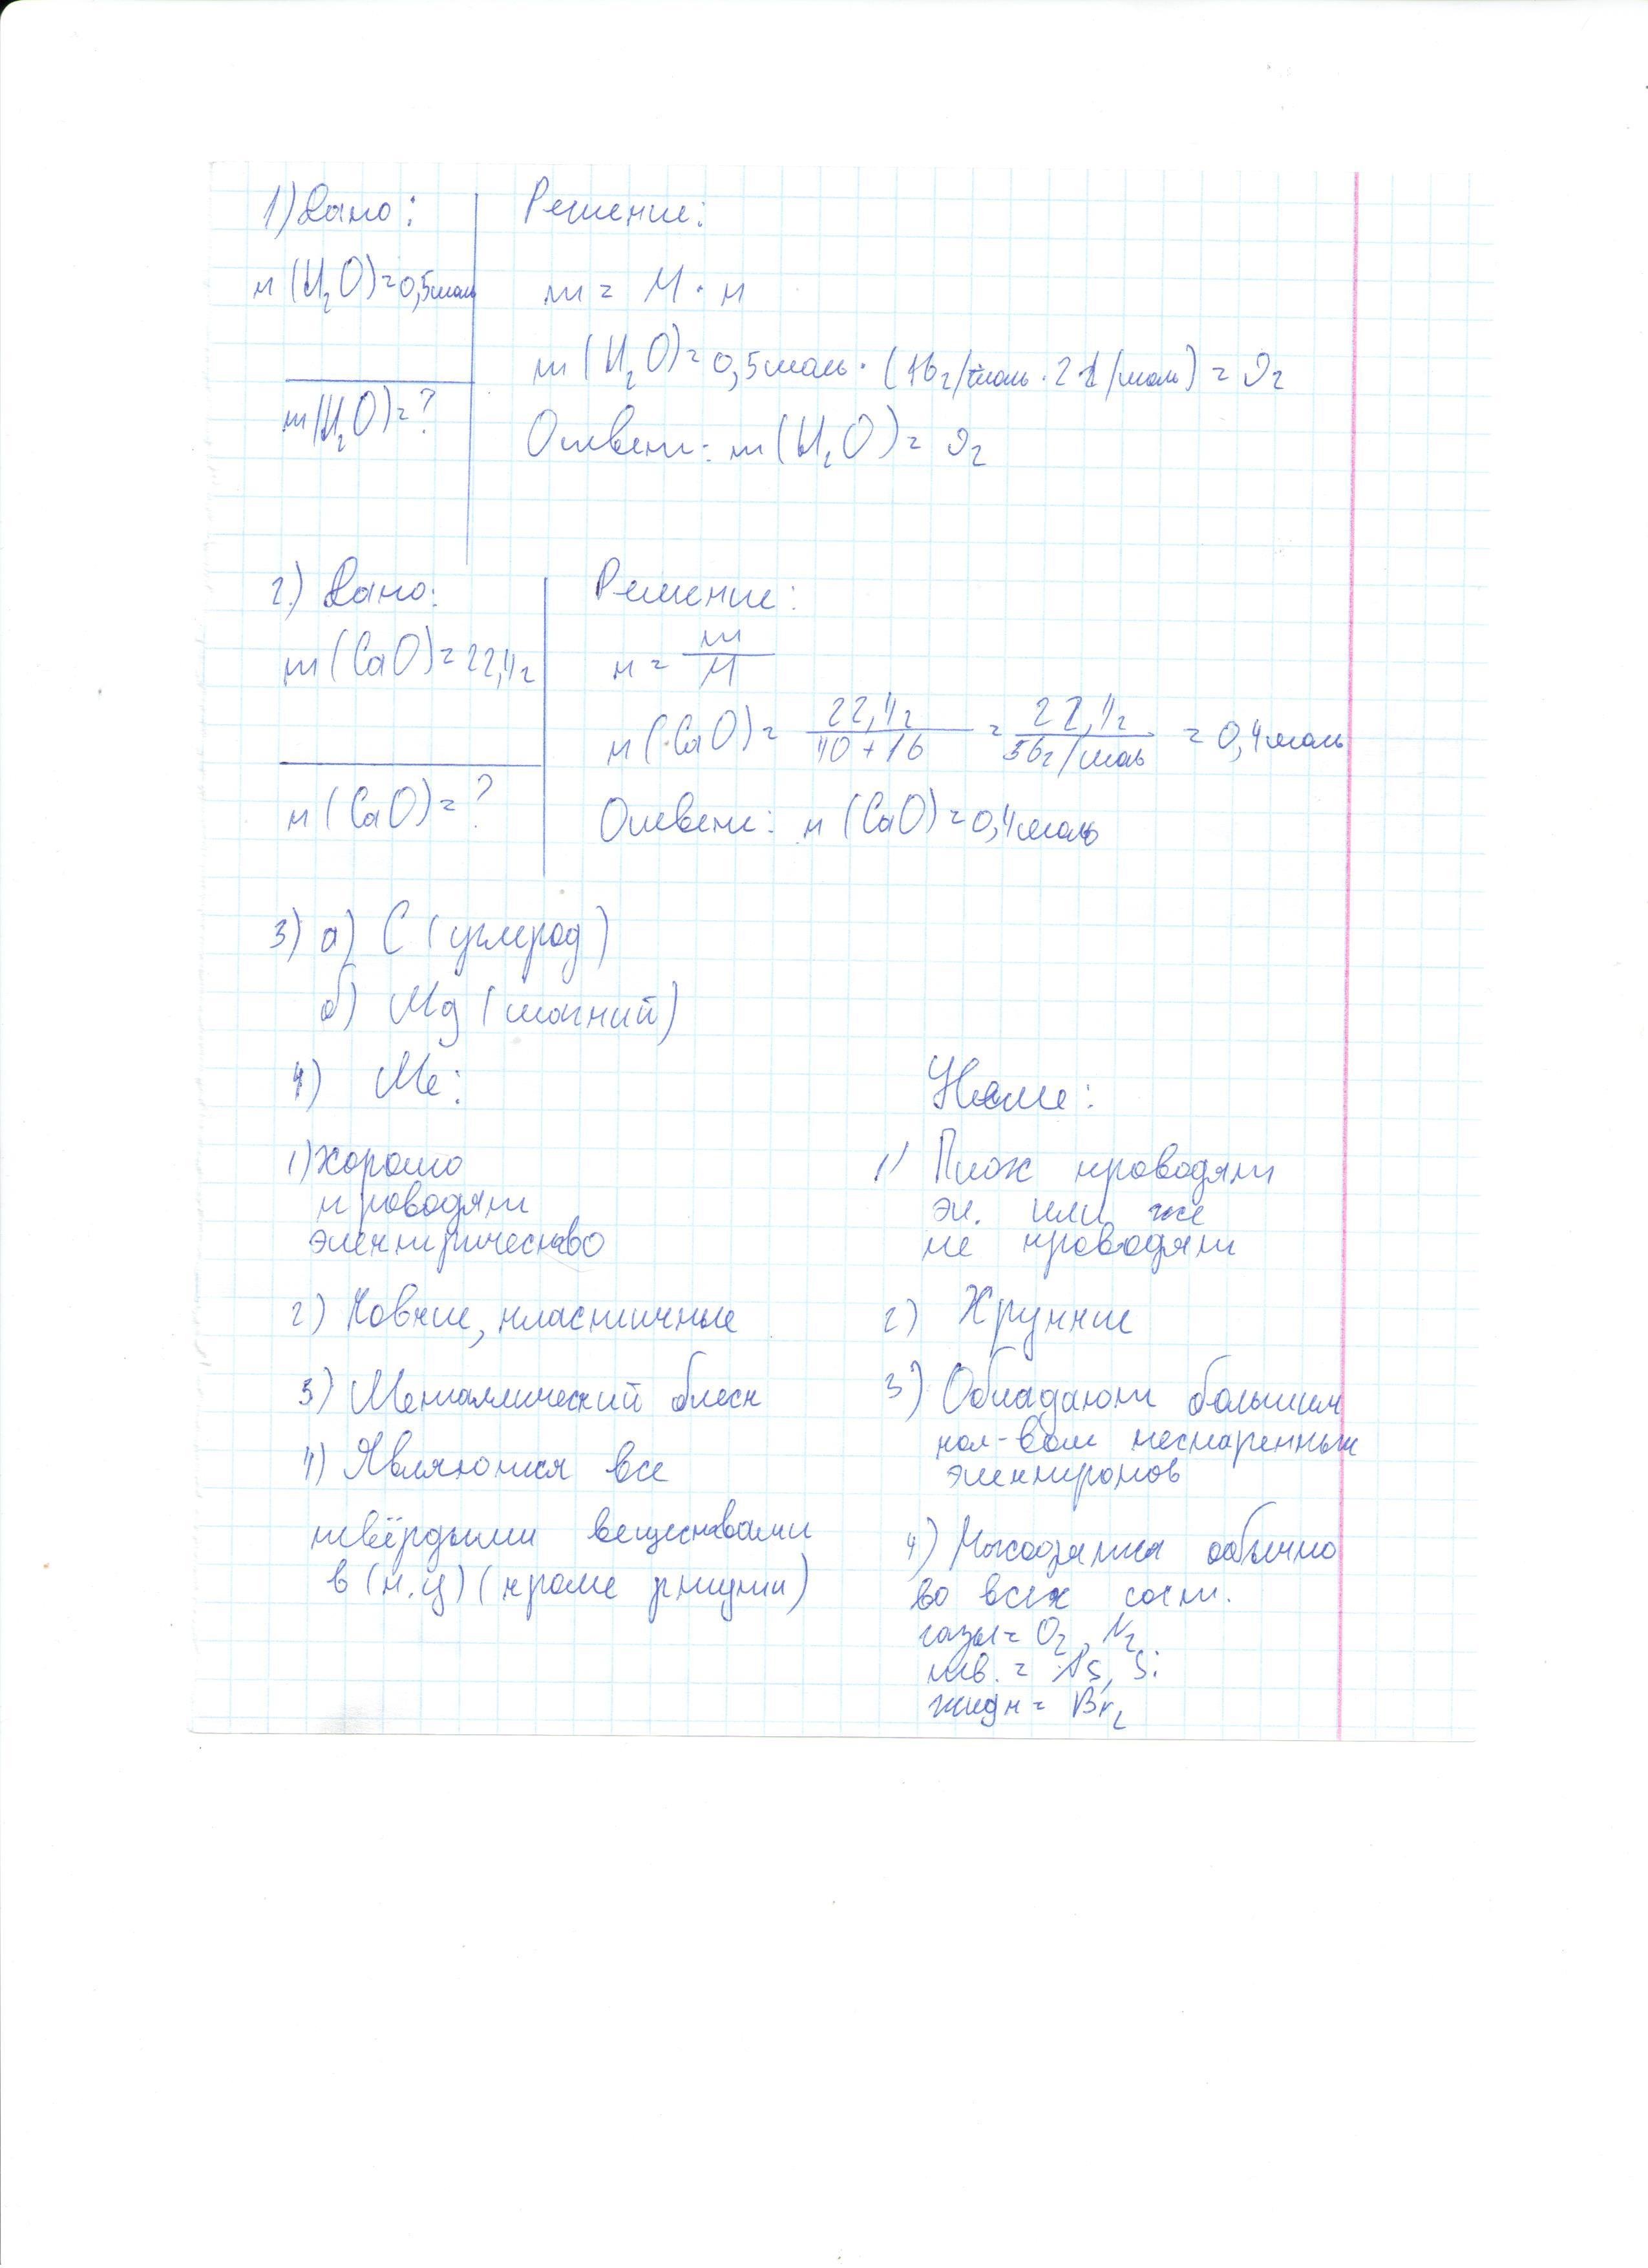 1) Дано:
Решение:
n (H₂O) = 0,5 моль
m = M · n
m (H₂O) = 0,5 моль · (16 г/моль · 2 1/моль) = 9 г
m(H₂O) = ?
Ответ: m (H₂O) = 9 г
2) Дано:
Решение:
m (CaO) = 22,4 г
n = m/M
n (CaO) = 22,4 г / 40 + 16 = 22,4 г / 56 г/моль = 0,4 моль
n (CaO) = ?
Ответ: n (CaO) = 0,4 моль
3) а) C (углерод)
б) Mg (магний)
4) Ме:
1) Хорошо
проводят
электричество
2) Ковкие, пластичные
3) Металлический блеск
4) Являются все
твёрдыми веществами
в (н.у) (кроме ртути)
НеМе:
1) Плох проводят
эл. или же
не проводят
2) Хрупкие
3) Обладают большим
кол-вом неспаренных
электронов
4) обычно
во всех сост.
газы = O₂, N₂
тв. = As, Si
жидк = Br₂